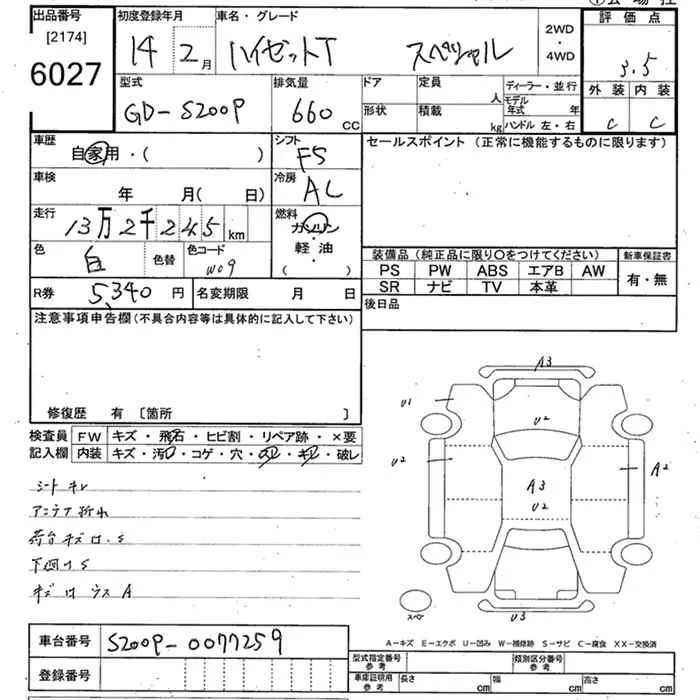 出品番号
[2174]
6027
初度登録年月
14 2月
車名・グレード
ハイゼットT スペシャル
2WD
・
4WD
評価点
3.5
外装 内装
C C
型式
GD-S200P
排気量
660 CC
ドア
定員
人
形状
積載
kg
ディーラー・並行
モデル年式 年
ハンドル 左・右
車歴
自家用・( )
シフト
F5
セールスポイント (正常に機能するものに限ります)
車検
年 月( 日)
冷房
AC
走行
13万2千245km
燃料
ガソリン
・
軽油
( )
色
白
色替
色コード
W09
装備品 (純正品に限り○をつけてください)
新車保証書
PS PW ABS エアB AW
SR ナビ TV 本革
有・無
R券
5,340円
名変期限 月 日
後日品
注意事項申告欄(不具合内容等は具体的に記入して下さい)
修復歴 有 [箇所 ]
検査員
記入欄
FW キズ・飛石・ヒビ割・リペア跡・×要
内装 キズ・汚・コゲ・穴・・・破レ
シートキレ
アンテナ折れ
荷台キズ凹、S
下廻りS
キズ凹ウスA
A3
U1
U2
U2
A2
A3
U2
スペア
U3
A-キズ E-エクボ U-凹み W-補修跡 S-サビ C-腐食 XX-交換済
車台番号
S200P-0077259
登録番号
型式指定番号
参考
類別区分番号
参考
車庫証明用
参考
長さ cm
幅 cm
高さ cm